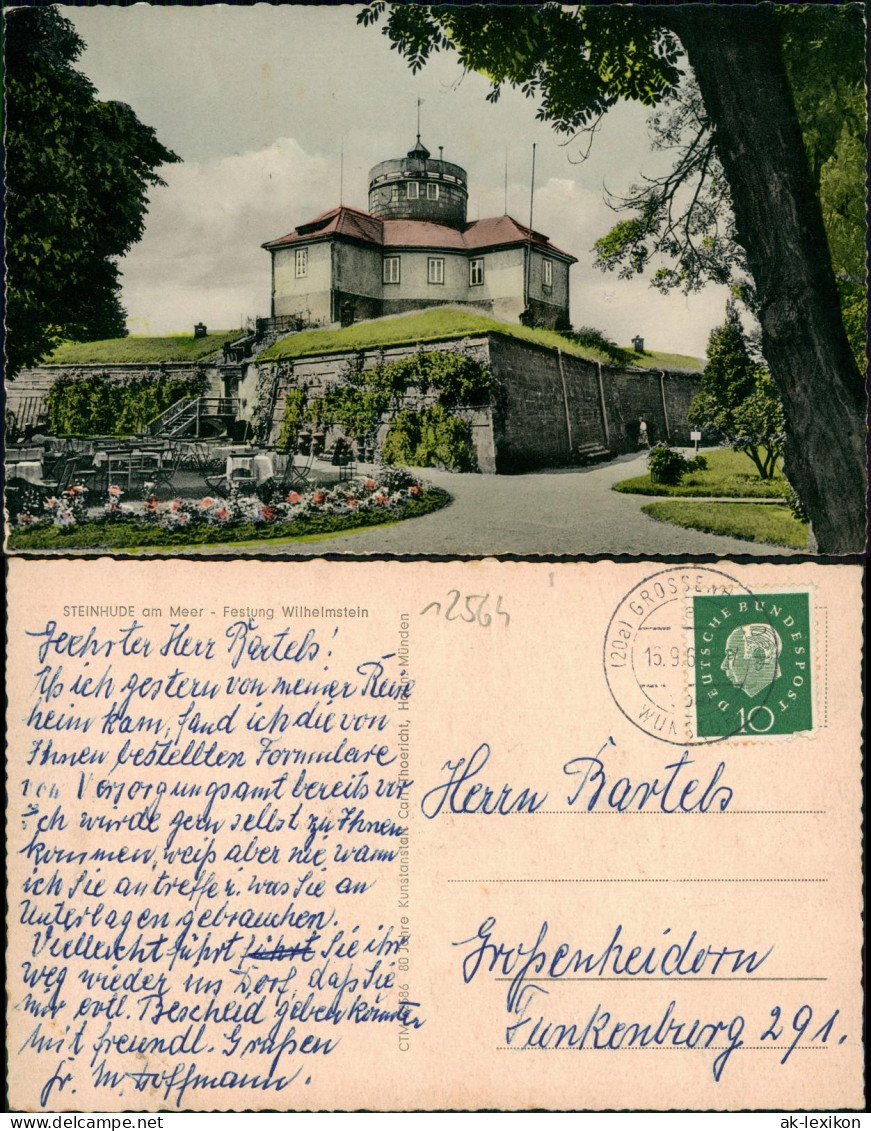 STEINHUDE am Meer - Festung Wilhelmstein
12564
Geehrter Herr Bartels!
Als ich gestern von meiner Reise
heim kam, fand ich die von
Ihnen bestellten Formulare
von Versorgungsamt bereits vor
Ich würde gern selbst zu Ihnen
kommen, weiß aber nie wann
ich Sie antreffe u. was Sie an
Unterlagen gebrauchen.
Vielleicht führt führt Sie ihr
Weg wieder ins Dorf, daß Sie
mir evtl. Bescheid geben könnten
Mit freundl. Grüßen
Fr. M. Hoffmann.
80 Jahre Kunstanstalt Carl Thoericht, Hann. Münden
(20a) GROSSENH
15.9.6
WUNS
DEUTSCHE BUNDESPOST
10
Herrn Bartels
Großenheidorn
Funkenburg 291.
ak-lexikon